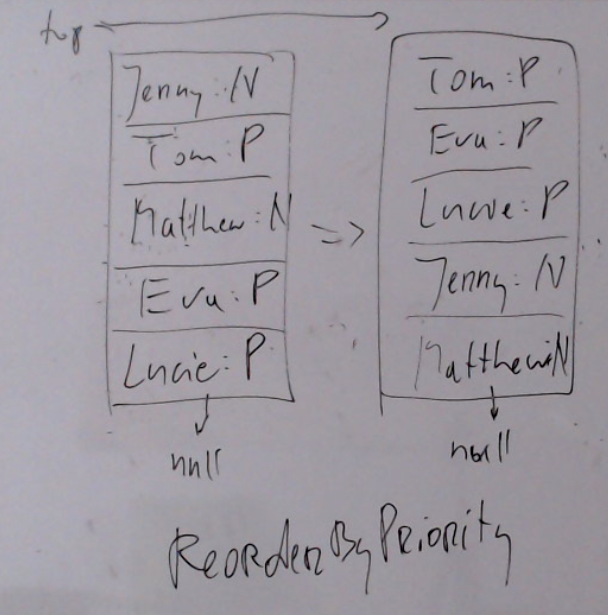 top
Jenny: N
Tom: P
Matthew: N
Eva: P
Lucie: P
null
=>
Tom: P
Eva: P
Lucie: P
Jenny: N
Matthew: N
null
ReorderByPriority